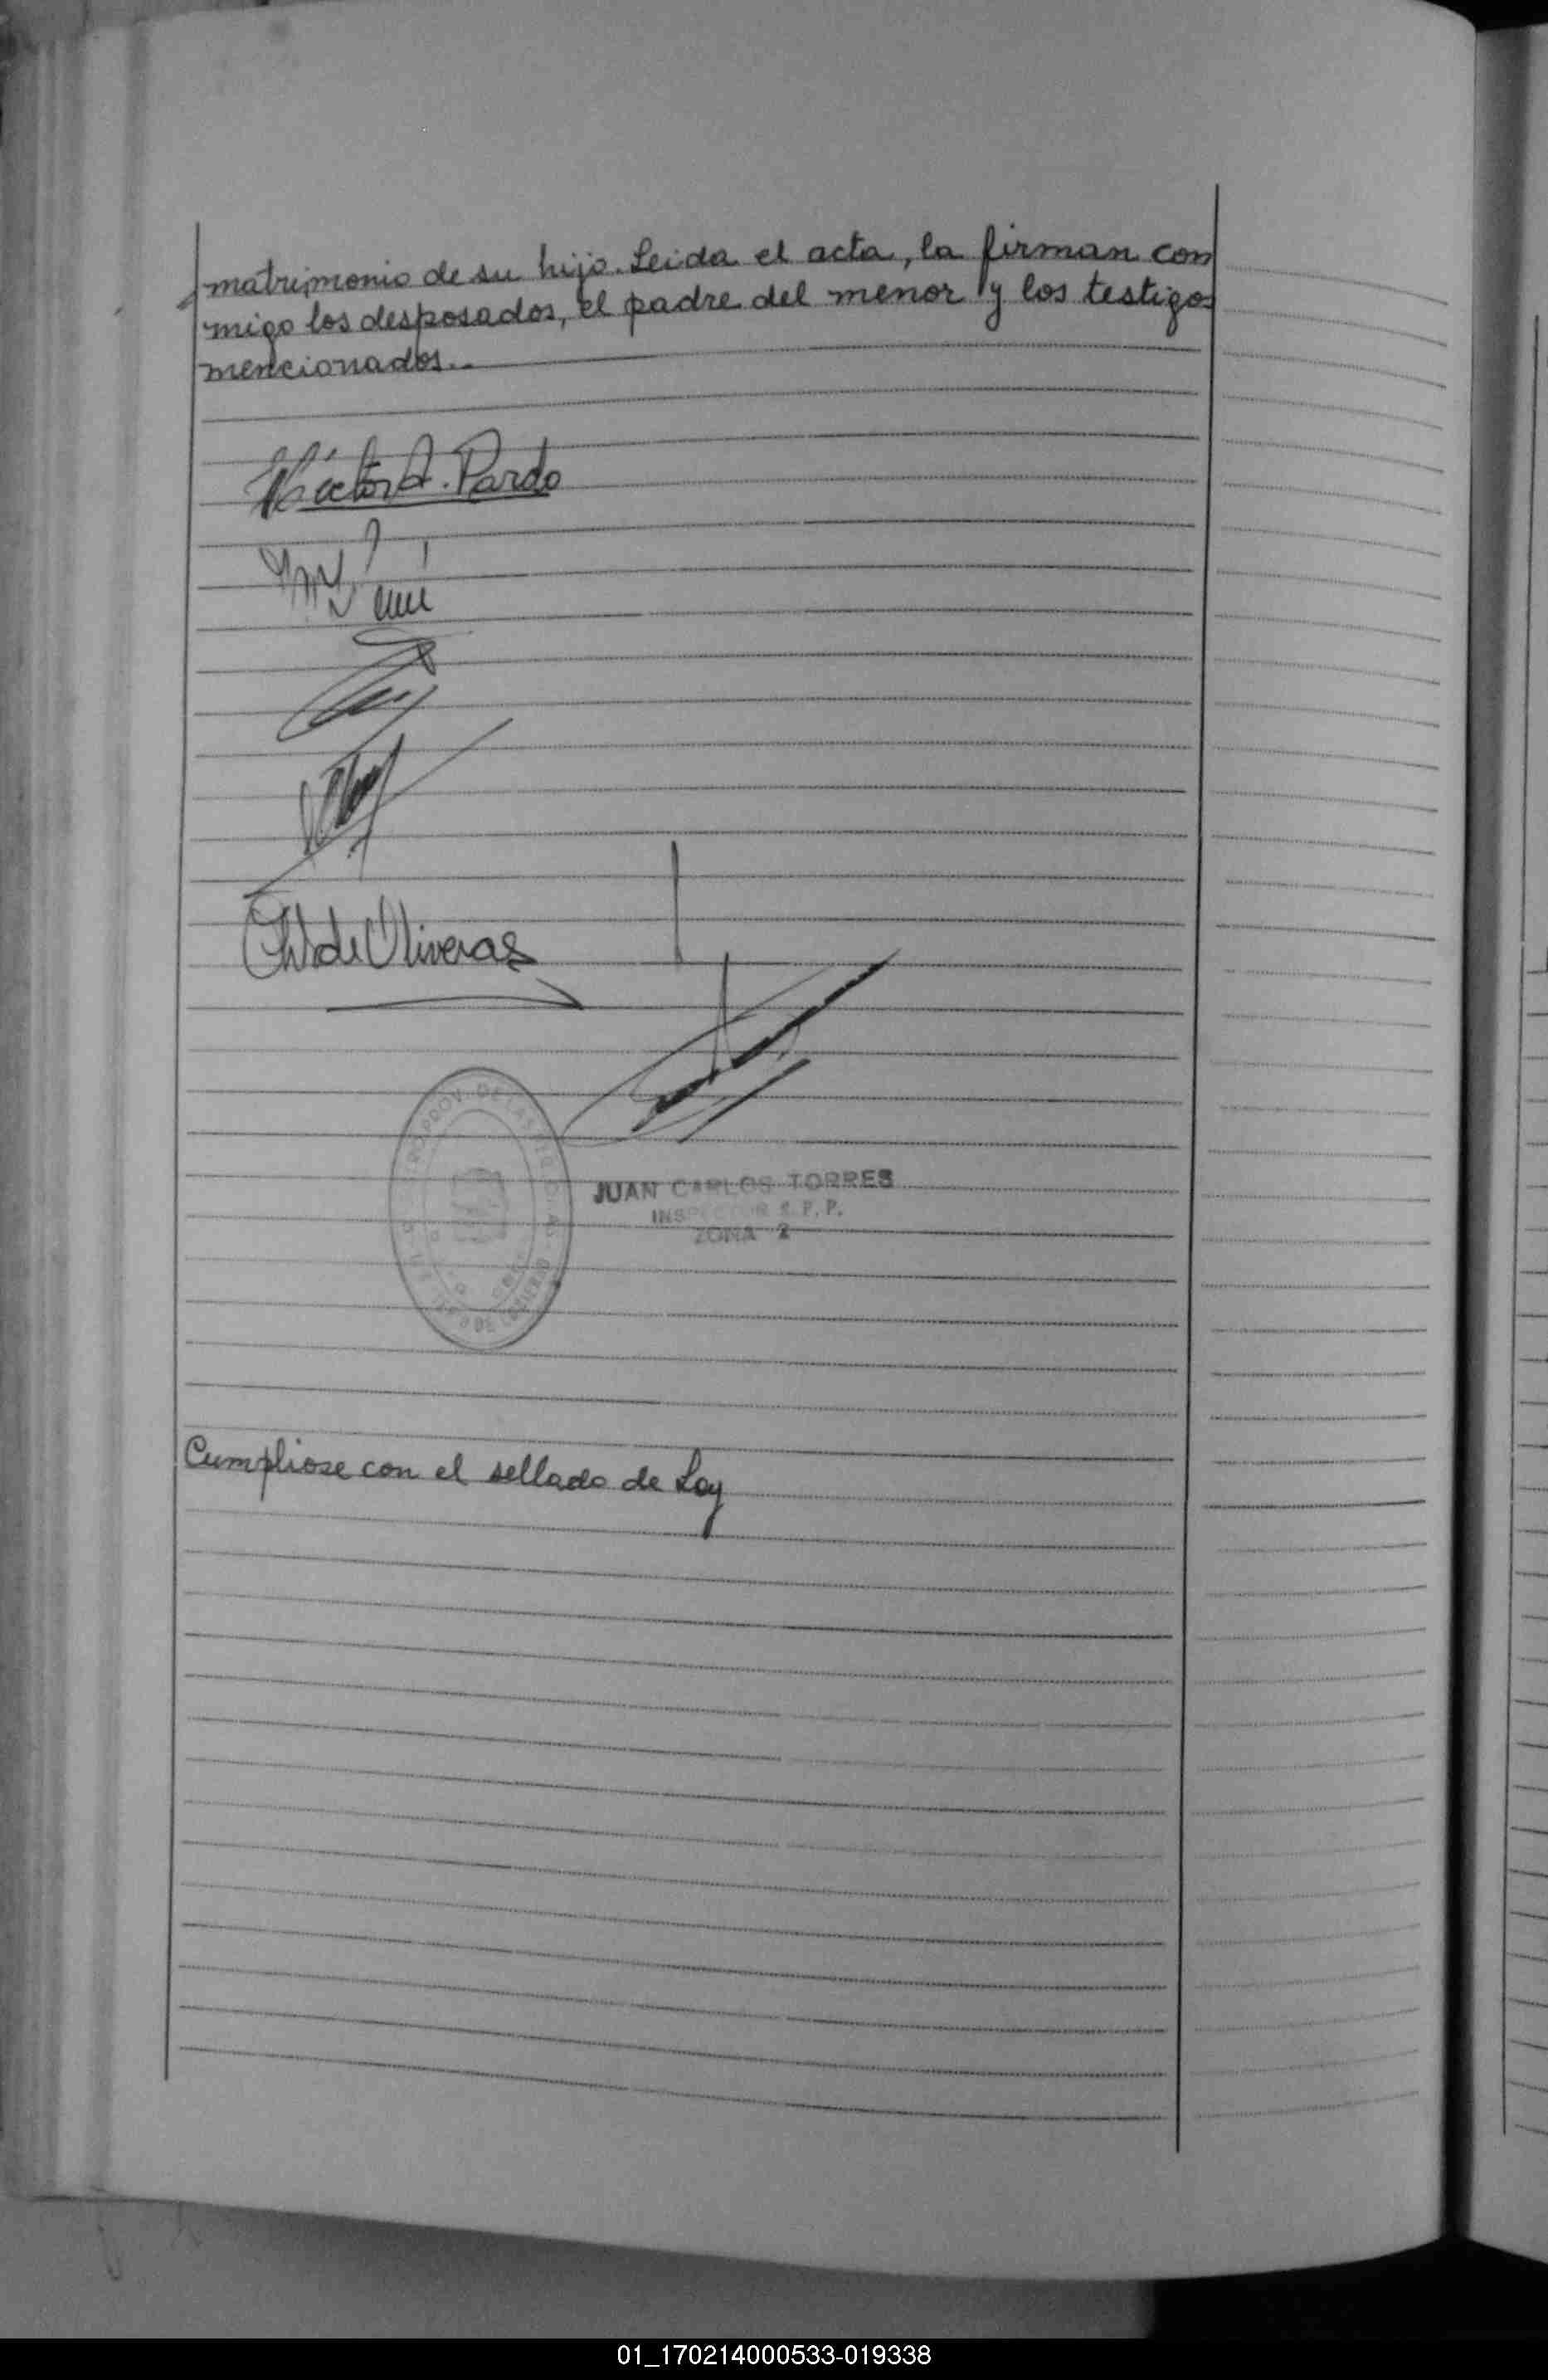 matrimonio de su hijo. Leida el acta, la firman con
migo los desposados, el padre del menor y los testigos
mencionados..
Héctor A. Pardo
de Oliveras
JUAN CARLOS TORRES
INSPECTOR
ZONA 2
Cumpliose con el sellado de Ley
01_170214000533-019338